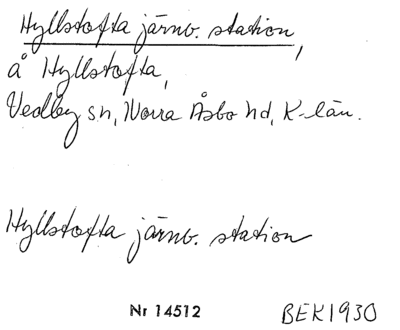 Hyllstofta järnv. station,
å Hyllstofta,
Vedby sn, Norra Åsbo hd, K-län.
Hyllstofta järnv. station
Nr 14512 BEK1930